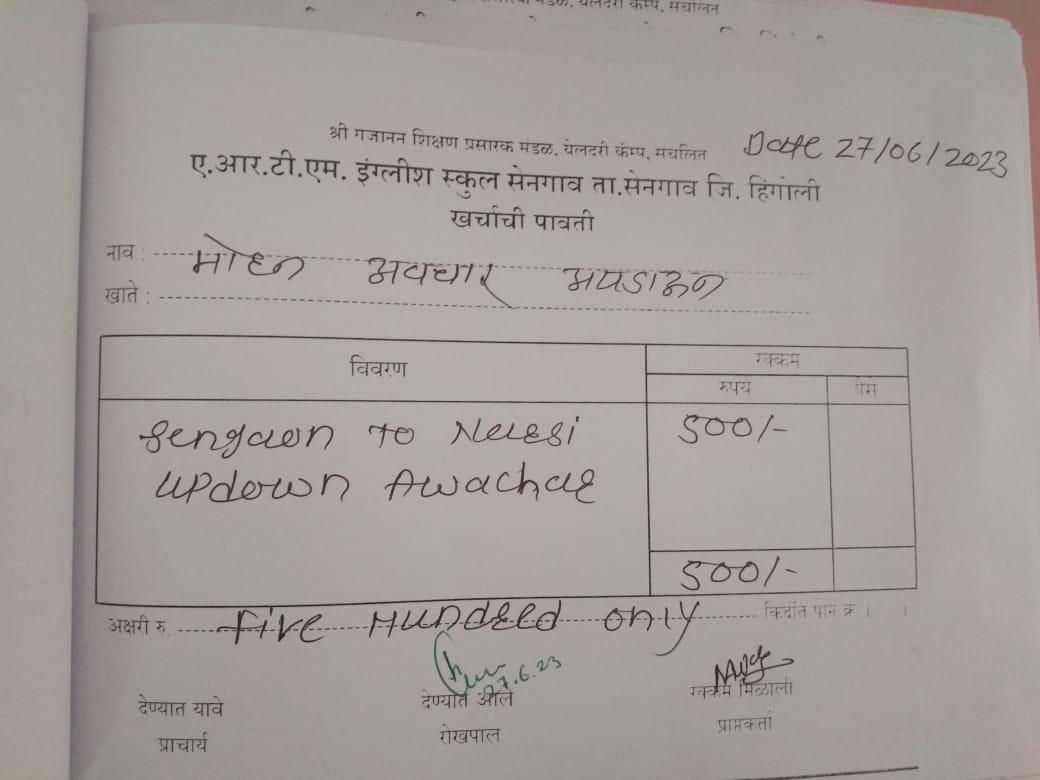 येलदरी कॅम्प, संचलित
श्री गजानन शिक्षण प्रसारक मंडळ, येलदरी कॅम्प, संचलित
Date 27/06/2023
ए.आर.टी.एम. इंग्लीश स्कुल सेनगाव ता.सेनगाव जि. हिंगोली
खर्चाची पावती
नाव : मोहन अवचार अपडाऊन
खाते :
विवरण रक्कम
रुपये पैसे
Sengaon To Narsi 500/-
updown Awachar
500/-
अक्षरी रु. five Hundred only किर्दीत पान क्र ( )
27.6.23
देण्यात यावे देण्यात आले रक्कम मिळाली
प्राचार्य रोखपाल प्राप्तकर्ता